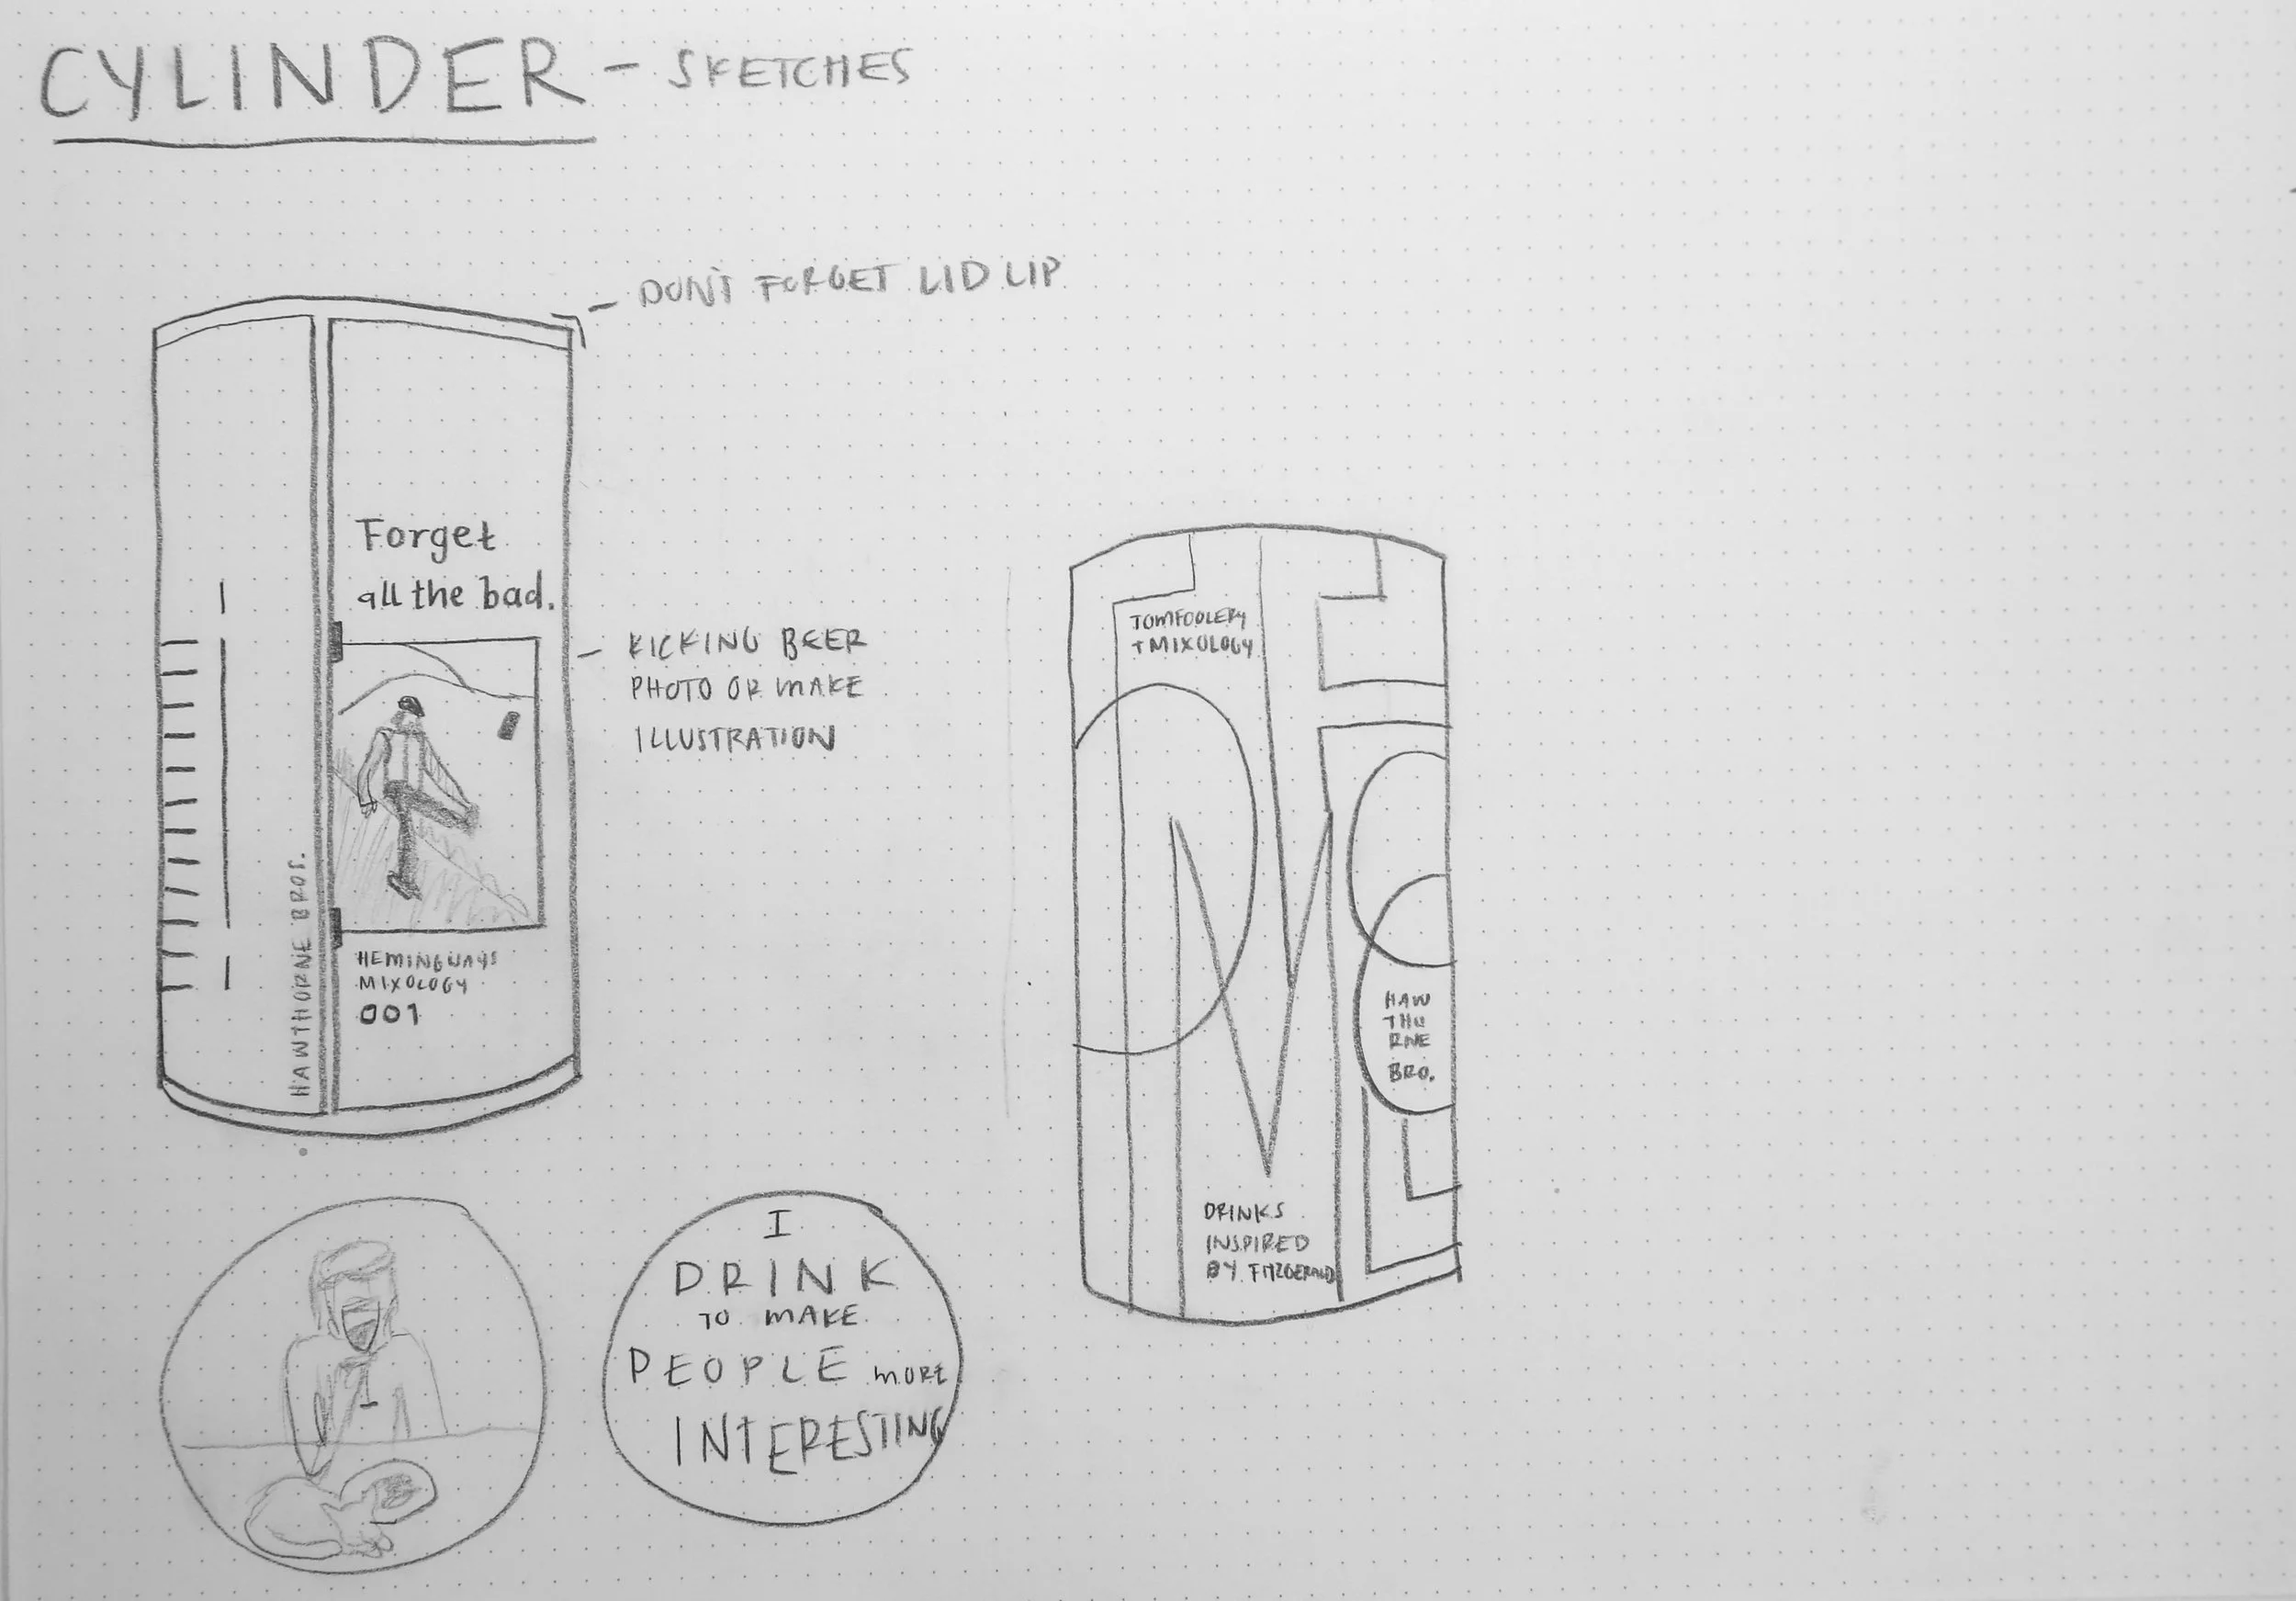 CYLINDER - SKETCHES
DON'T FORGET LID LIP
Forget
all the bad.
KICKING BEER
PHOTO OR MAKE
ILLUSTRATION
HAWTHORNE BROS.
HEMINGWAYS
MIXOLOGY
001
I
DRINK
TO MAKE
PEOPLE MORE
INTERESTING
TOMFOOLERY
+ MIXOLOGY
HAW
THO
RNE
BRO.
DRINKS
INSPIRED
BY FITZGERALD